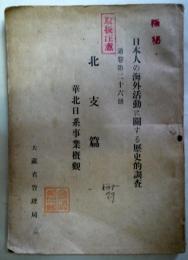 極秘
取扱注意
日本人の海外活動に関する歴史的調査
通巻第二十六冊
北支篇
華北日系事業概観
大蔵省管理局